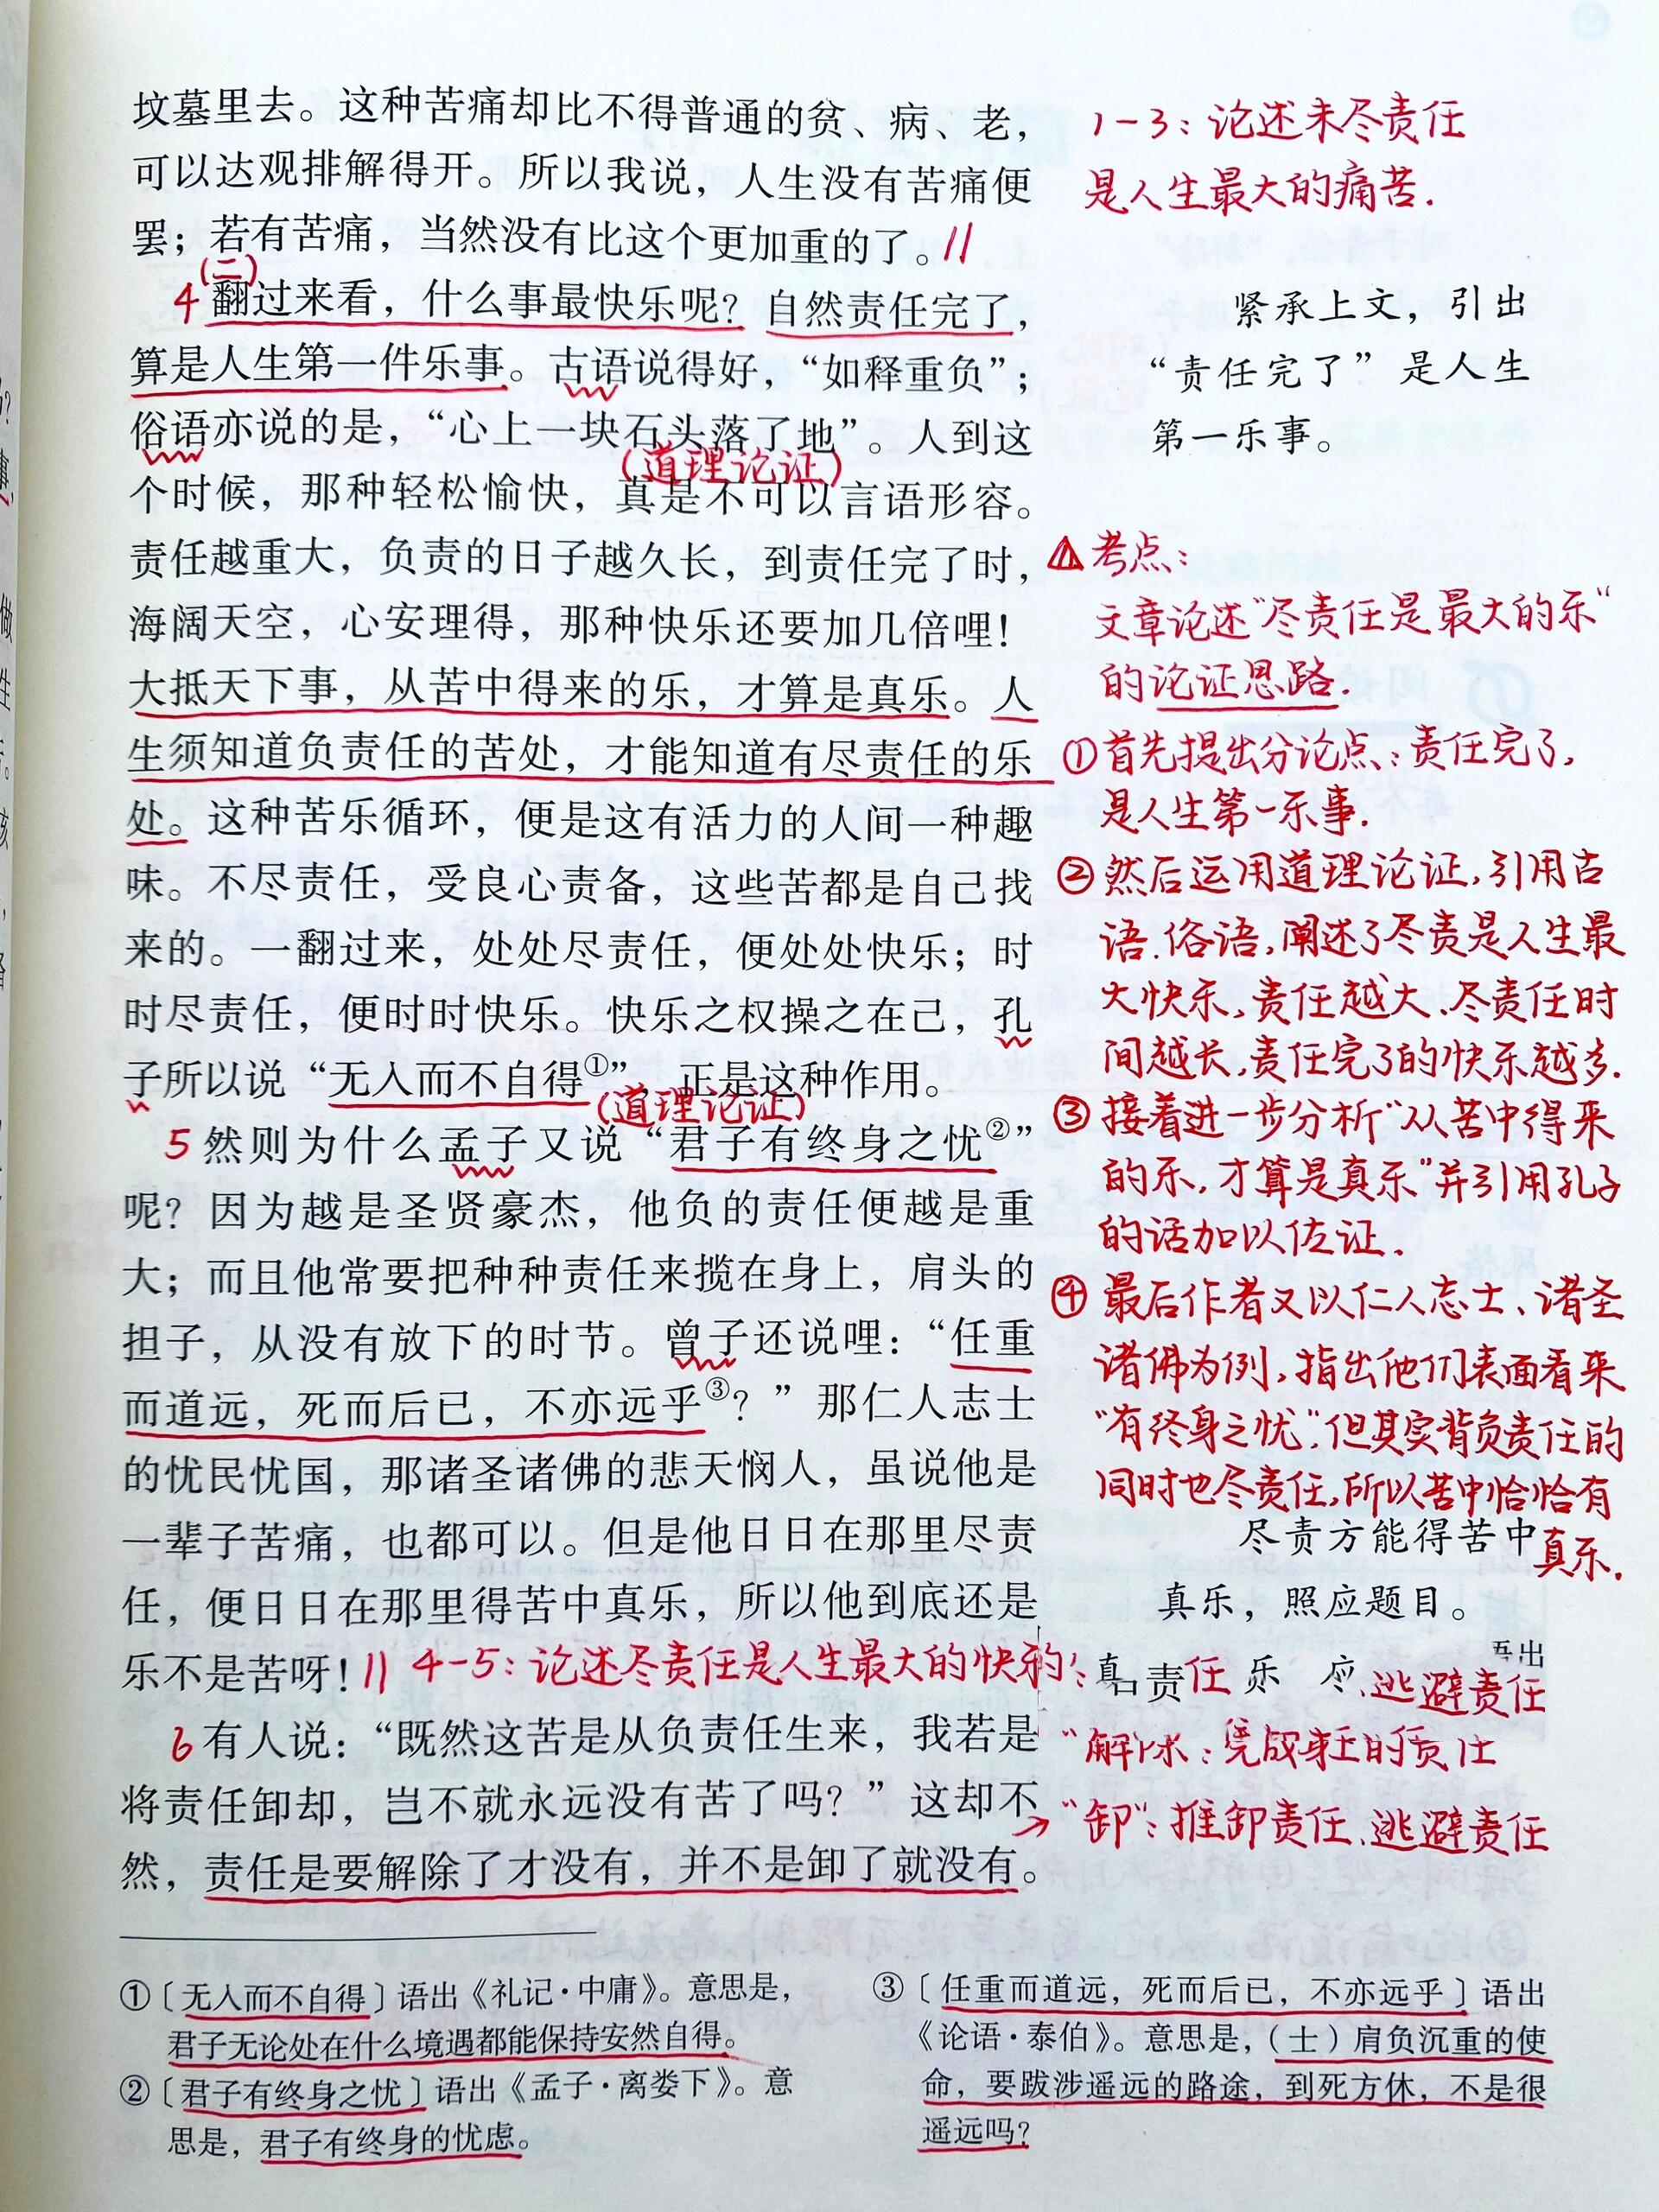 坟墓里去。这种苦痛却比不得普通的贫、病、老，
可以达观排解得开。所以我说，人生没有苦痛便
罢；若有苦痛，当然没有比这个更加重的了。//
(二)
4 翻过来看，什么事最快乐呢？自然责任完了，
算是人生第一件乐事。古语说得好，“如释重负”；
俗语亦说的是，“心上一块石头落了地”。人到这
(道理论证)
个时候，那种轻松愉快，真是不可以言语形容。
责任越重大，负责的日子越久长，到责任完了时，
海阔天空，心安理得，那种快乐还要加几倍哩！
大抵天下事，从苦中得来的乐，才算是真乐。人
生须知道负责任的苦处，才能知道有尽责任的乐
处。这种苦乐循环，便是这有活力的人间一种趣
味。不尽责任，受良心责备，这些苦都是自己找
来的。一翻过来，处处尽责任，便处处快乐；时
时尽责任，便时时快乐。快乐之权操之在己，孔
子所以说“无入而不自得①”，正是这种作用。
(道理论证)
5 然则为什么孟子又说“君子有终身之忧②”
呢？因为越是圣贤豪杰，他负的责任便越是重
大；而且他常要把种种责任来揽在身上，肩头的
担子，从没有放下的时节。曾子还说哩：“任重
而道远，死而后已，不亦远乎③？”那仁人志士
的忧民忧国，那诸圣诸佛的悲天悯人，虽说他是
一辈子苦痛，也都可以。但是他日日在那里尽责
任，便日日在那里得苦中真乐，所以他到底还是
乐不是苦呀！// 4-5：论述尽责任是人生最大的快乐
6 有人说：“既然这苦是从负责任生来，我若是
将责任卸却，岂不就永远没有苦了吗？”这却不
然，责任是要解除了才没有，并不是卸了就没有。
1-3：论述未尽责任
是人生最大的痛苦.
紧承上文，引出
“责任完了”是人生
第一乐事。
考点：
文章论述“尽责任是最大的乐”
的论证思路.
①首先提出分论点：责任完了，
是人生第一乐事.
②然后运用道理论证，引用古
语、俗语，阐述了尽责是人生最
大快乐，责任越大、尽责任时
间越长，责任完了的快乐越多.
③接着进一步分析“从苦中得来
的乐，才算是真乐”并引用孔子
的话加以佐证.
④最后作者又以仁人志士、诸圣
诸佛为例，指出他们表面看来
“有终身之忧”，但其实背负责任的
同时也尽责任，所以苦中恰恰有
真乐.
尽责方能得苦中
真乐，照应题目。
责任
逃避责任
“卸”：推卸责任、逃避责任
①〔无入而不自得〕语出《礼记·中庸》。意思是，
君子无论处在什么境遇都能保持安然自得。
②〔君子有终身之忧〕语出《孟子·离娄下》。意
思是，君子有终身的忧虑。
③〔任重而道远，死而后已，不亦远乎〕语出
《论语·泰伯》。意思是，（士）肩负沉重的使
命，要跋涉遥远的路途，到死方休，不是很
遥远吗？